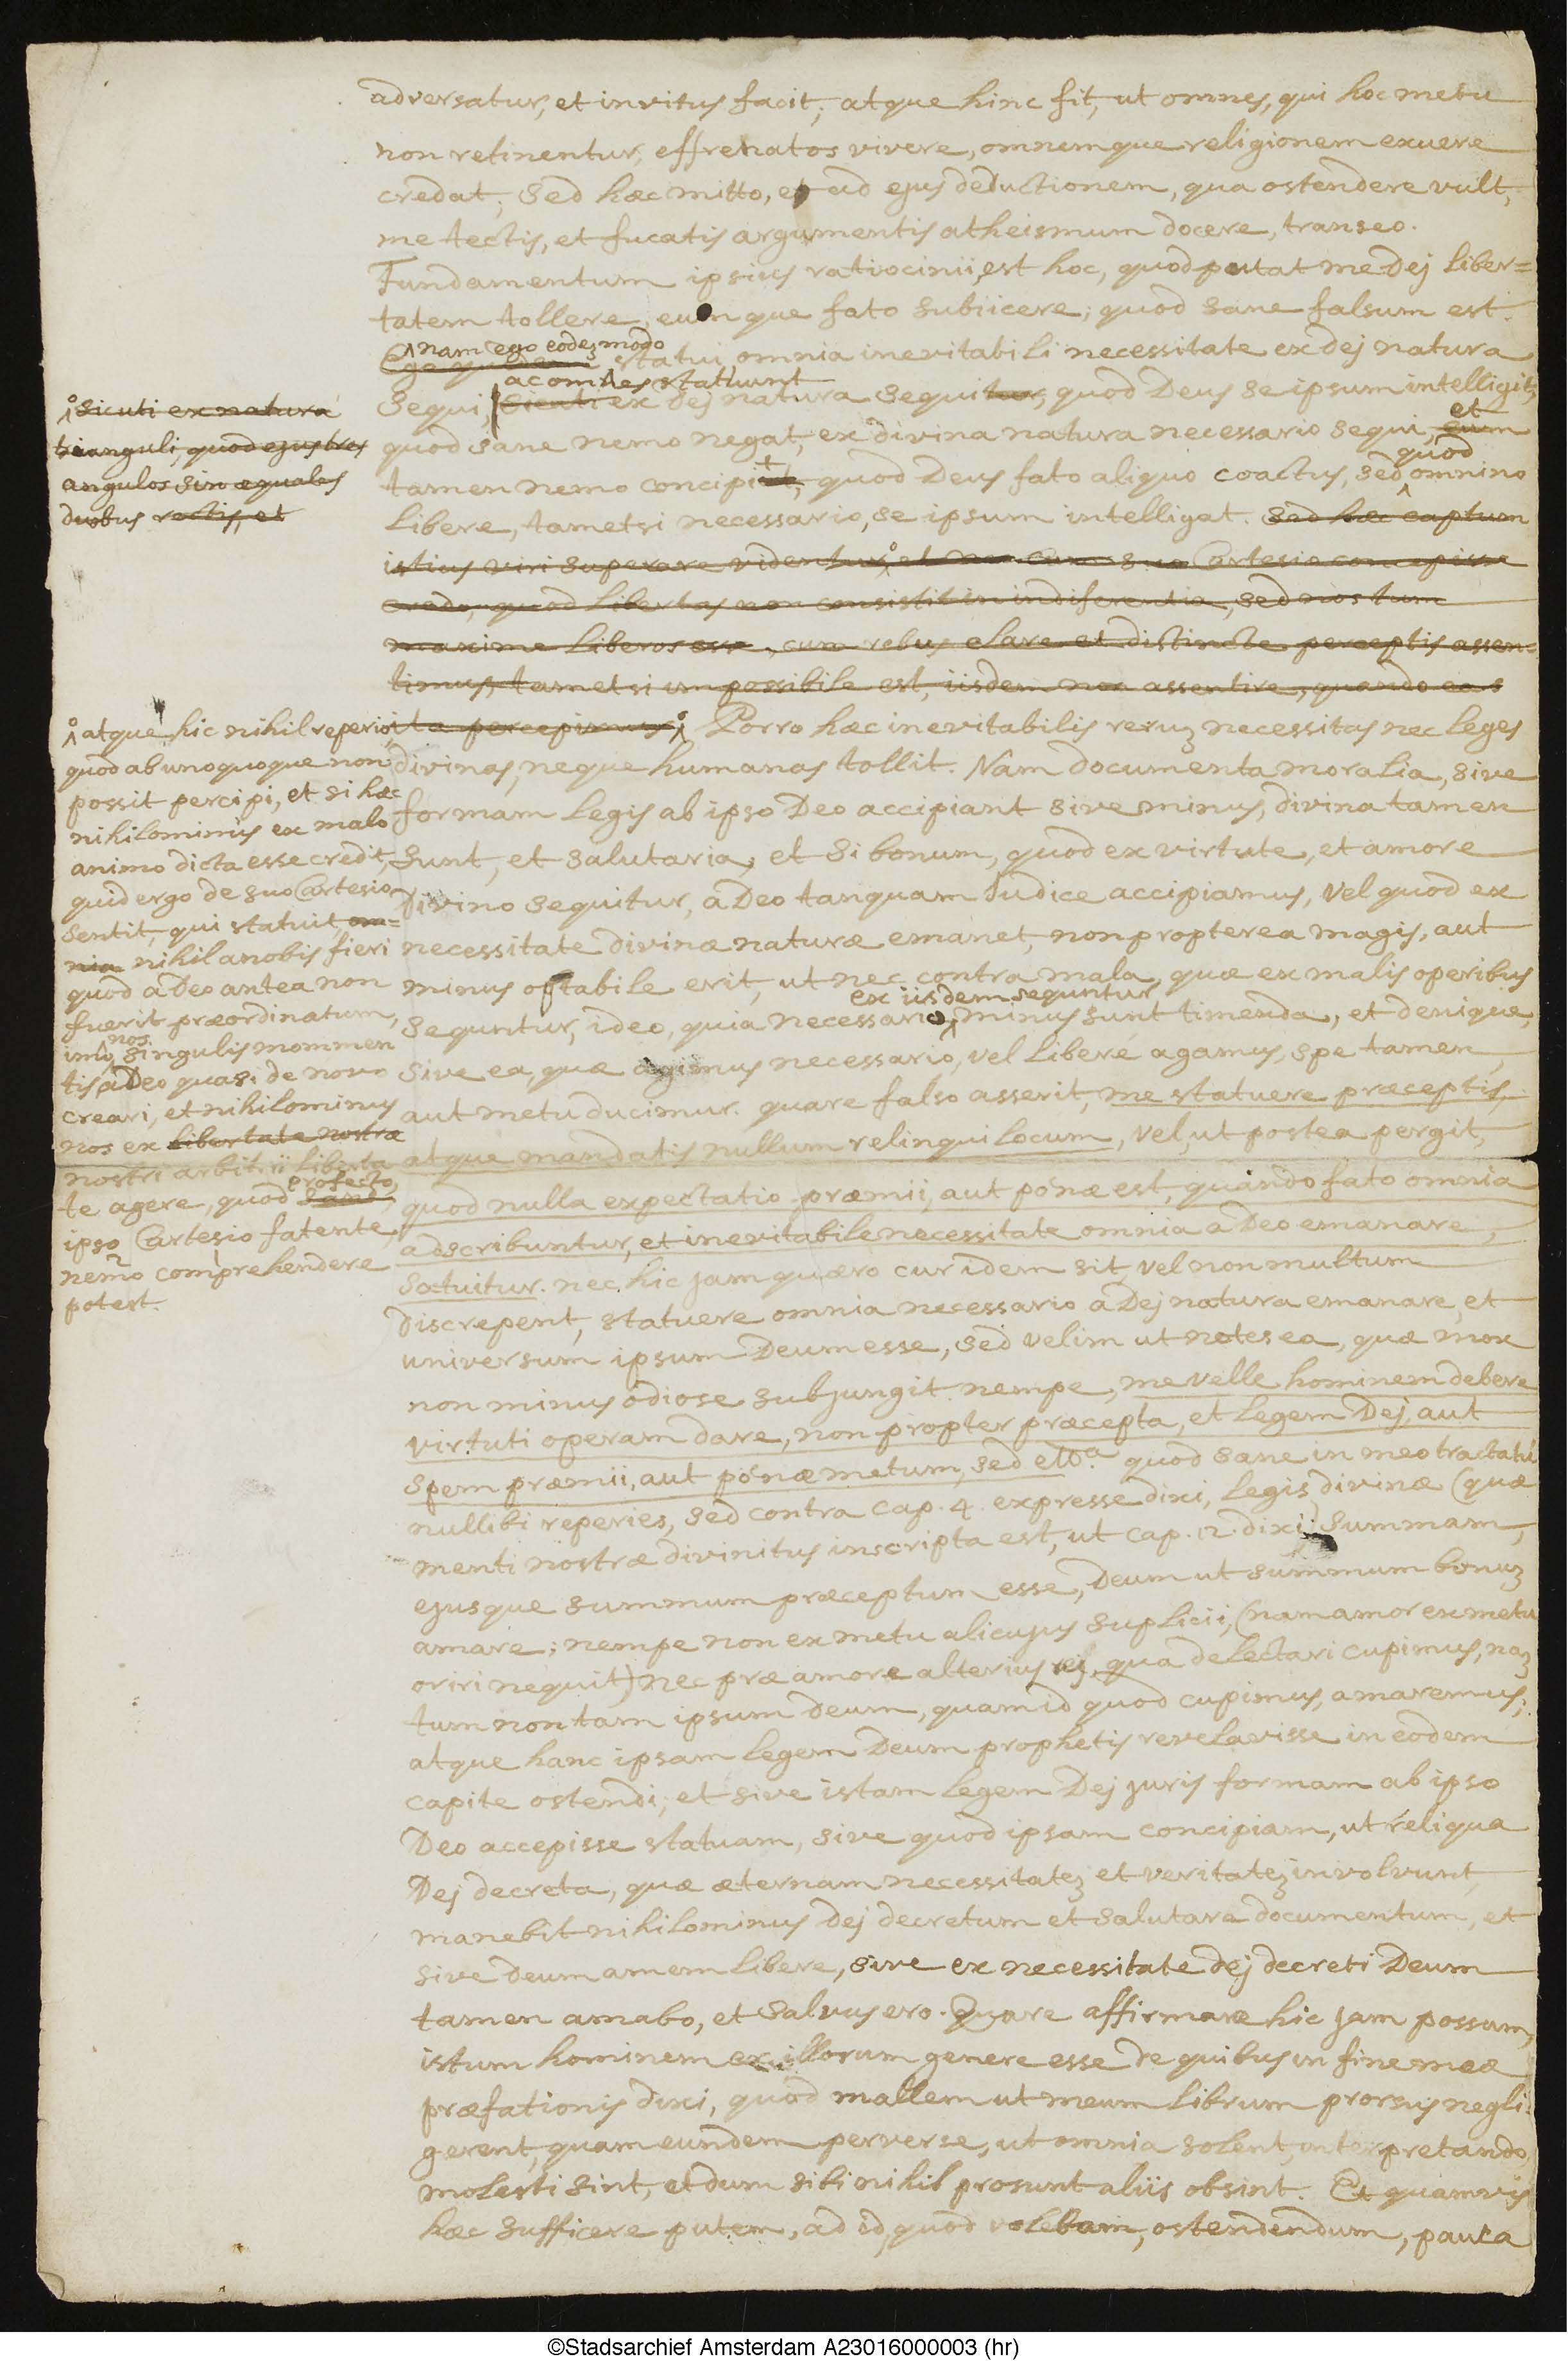 adversatur, et invitus facit; atque hinc fit, ut omnes, qui hoc metu
non retinentur, effrenatos vivere, omnemque religionem exuere
credat; sed hæc mitto, et ad ejus deductionem, qua ostendere vult,
me tectis, et fucatis argumentis atheismum docere, transeo.
Fundamentum ipsius ratiocinii est hoc, quod putat me Dej liber=
tatem tollere, eumque fato subiicere; quod sane falsum est.
nam ego eodez modo
statui omnia inevitabili necessitate ex dej natura
ac omnes statuunt
sequi, sicuti ex dej natura sequitur, quod Deus se ipsum intelligit,
quod sane nemo negat, ex divina natura necessario sequi, eum
et
tamen nemo concipit, quod Deus fato aliquo coactus, sed omnino
quod
libere, tametsi necessario, se ipsum intelligat. Sed hæc captum
istius viri superare videntur, et cum suo Cartesio concepisse
credo, quod libertas non consistit in indiferentia, sed nos tum
maxime liberos esse, cum rebus clare et distincte perceptis assen=
timus, tametsi impossibile est, iisdem non assentire, quando eas
ita percepimus, Porro hæc inevitabilis reruz necessitas nec leges
divinas, neque humanas tollit. Nam documenta moralia, sive
formam legis ab ipso Deo accipiant sive minus, divina tamen
sunt, et salutaria, et si bonum, quod ex virtute, et amore
divino sequitur, a Deo tanquam Judice accipiamus, vel quod ex
necessitate divinæ naturæ emanet, non propterea magis, aut
minus optabile erit, ut nec contra mala, quæ ex malis operibus
ex iisdem seguntur
seguntur, ideo, quia necessario, minus sunt timenda, et denique,
sive ea, quæ agimus necessario, vel liberé agamus, spe tamen,
aut metu ducimur. quare falso asserit, me statuere præceptis,
atque mandatis nullum relinqui locum, vel, ut postea pergit,
quod nulla expectatio præmii, aut pónæ est, quando fato omnia
adscribuntur, et inevitabile necessitate omnia a Deo emanare,
satuitur. nec hic jam quæro cur idem sit, vel non multum
discrepent, statuere omnia necessario a Dej natura emanare, et
universum ipsum Deum esse, sed velim ut notes ea, quæ mox
non minus odiose subjungit. nempe, me velle hominem debere
virtuti operam dare, non propter præcepta, et legem Dej, aut
spem præmii, aut pónæ metum, sed etᵃ. quod sane in meo tractatu
nullibi reperies, sed contra cap. 4. expresse dixi, legis divinæ (quæ
menti nostræ divinitus inscripta est, ut cap. 12. dixi) summam,
ejusque summum præceptum esse, Deum ut summum bonuz
amare; nempe non ex metu alicujus suplicii, (nam amor ex metu
oriri nequit) nec præ amore alterius rej, qua delectari cupimus, naz
tum non tam ipsum deum, quam id quod cupimus, amaremus;
atque hanc ipsam legem Deum prophetis revelavisse in eodem
capite ostendi; et sive istam legem Dej juris formam ab ipso
Deo accepisse statuam, sive quod ipsam concipiam, ut reliqua
Dej decreta, quæ æternam necessitatez et veritatez involvunt,
manebit nihilominus dej decretum et salutare documentum, et
sive deum amem libere, sive ex necessitate dej decreti Deum
tamen amabo, et salvus ero. Quare affirmare hic jam possum,
istum hominem ex illorum genere esse de quibus in fine meæ
præfationis dixi, quod mallem ut meum librum prorsus negli=
gerent, quam eundem perverse, ut omnia solent, interpretando
molesti sint, et dum sibi nihil prosunt aliis obsint. Et quamvis
hæc sufficere putem, ad id, quod volebam, ostendendum, pauca
sicuti ex natura
trianguli, quod ejus tres
angulos sin æquales
duobus rectis, et
atque hic nihil reperio
quod ab unoquoque non
possit percipi, et si hæc
nihilominus ex malo
animo dicta esse credit,
quid ergo de suo Cartesio
sentit, qui statuit om=
nia nihil a nobis fieri
quod a Deo antea non
fuerit præordinatum,
imo nos singulis mommen
tis a Deo quasi de novo
creari, et nihilominus
nos ex libertate nostræ
nostri arbitrii liberta
te agere, quod sane profecto
ipso Cartesio fatente,
nemo comprehendere
potest.
©Stadsarchief Amsterdam A23016000003 (hr)